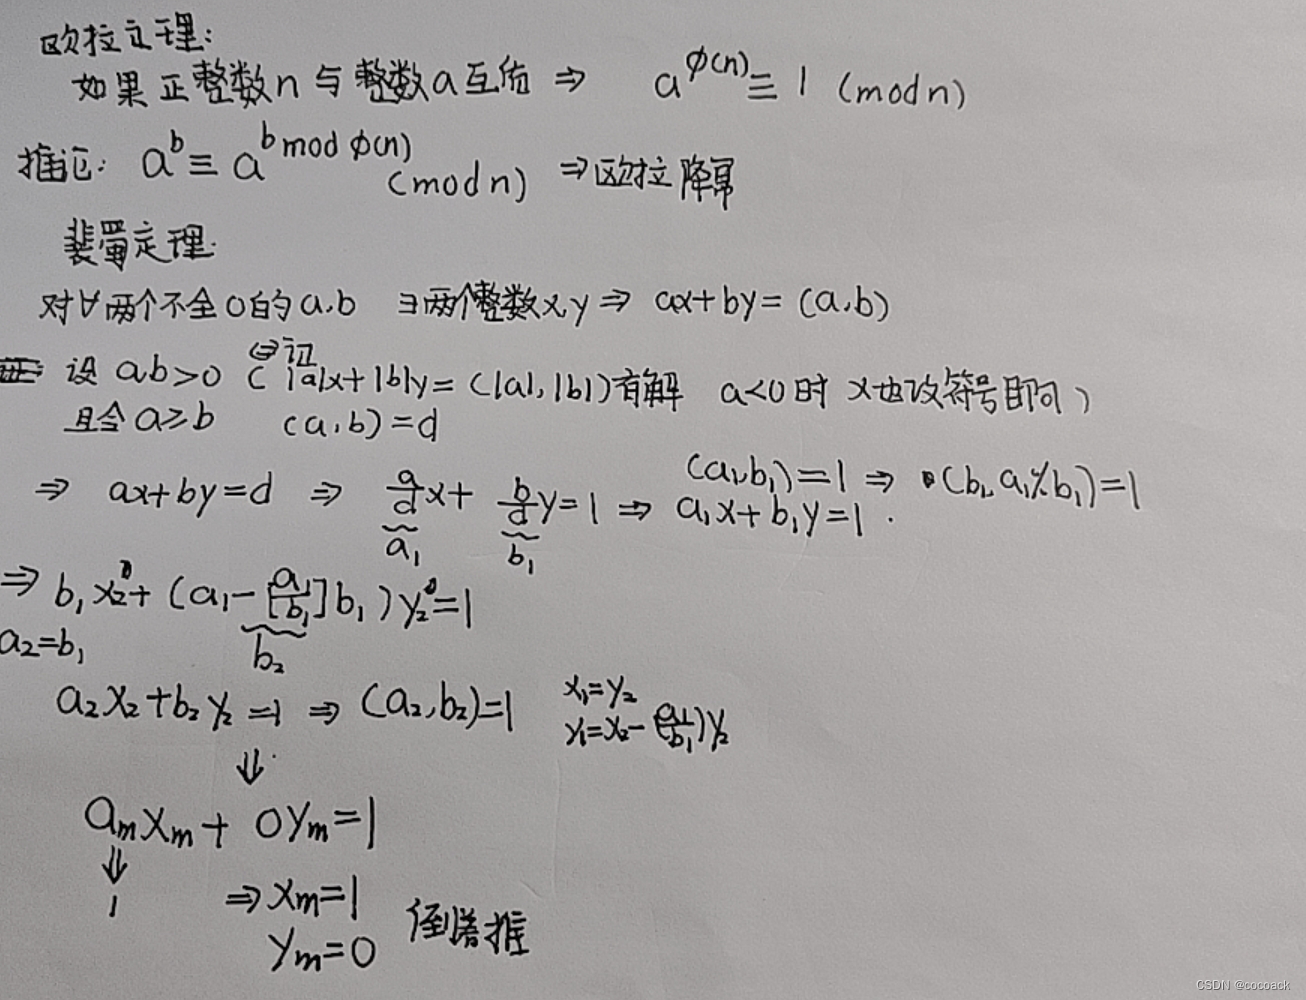 欧拉定理:
如果正整数n与整数a互质 ⇒ a^φ(n) ≡ 1 (mod n)
推论: a^b ≡ a^(b mod φ(n)) (mod n) ⇒欧拉降幂
裴蜀定理:
对∀两个不全0的a,b ∃两个整数x,y ⇒ ax+by=(a,b)
设 ab>0 (⇔证 |a|x+|b|y=(|a|,|b|)有解 a<0时 x也改符号即可)
且令a≥b (a,b)=d
⇒ ax+by=d ⇒ a/d x + b/d y=1 ⇒ a₁x+b₁y=1 . (a₁,b₁)=1 ⇒ (b₁,a₁%b₁)=1
a₁ b₁
⇒ b₁x₂+(a₁-[a₁/b₁]b₁)y₂=1
a₂=b₁ b₂
a₂x₂+b₂y₂=1 ⇒ (a₂,b₂)=1 x₁=y₂
y₁=x₂-(a₁/b₁)y₂
⇓
aₘxₘ+0yₘ=1
⇓
1 ⇒xₘ=1
yₘ=0 倒着推
CSDN @cocoack